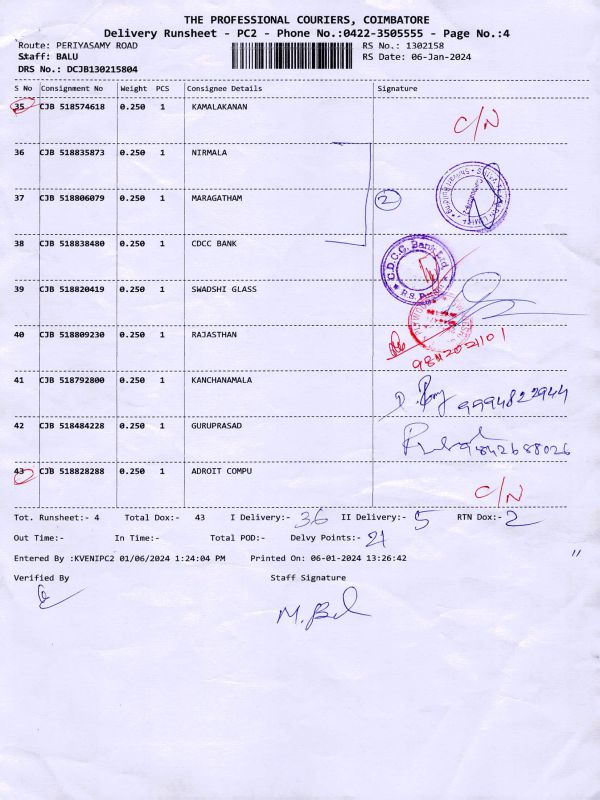 THE PROFESSIONAL COURIERS, COIMBATORE
Delivery Runsheet - PC2 - Phone No.:0422-3505555 - Page No.:4
Route: PERIYASAMY ROAD RS No.: 1302158
Staff: BALU RS Date: 06-Jan-2024
DRS No.: DCJB130215804
S No Consignment No Weight PCS Consignee Details Signature
35 CJB 518574618 0.250 1 KAMALAKANAN C/N
36 CJB 518835873 0.250 1 NIRMALA
37 CJB 518806079 0.250 1 MARAGATHAM 2
38 CJB 518838480 0.250 1 CDCC BANK C.D.C.C. Bank Ltd
39 CJB 518820419 0.250 1 SWADSHI GLASS
40 CJB 518809230 0.250 1 RAJASTHAN 9842021101
41 CJB 518792800 0.250 1 KANCHANAMALA 9994822944
42 CJB 518484228 0.250 1 GURUPRASAD 9842688026
43 CJB 518828288 0.250 1 ADROIT COMPU C/N
Tot. Runsheet:- 4 Total Dox:- 43 I Delivery:- 36 II Delivery:- 5 RTN Dox:- 2
Out Time:- In Time:- Total POD:- Delvy Points:- 21
Entered By :KVENIPC2 01/06/2024 1:24:04 PM Printed On: 06-01-2024 13:26:42
Verified By Staff Signature